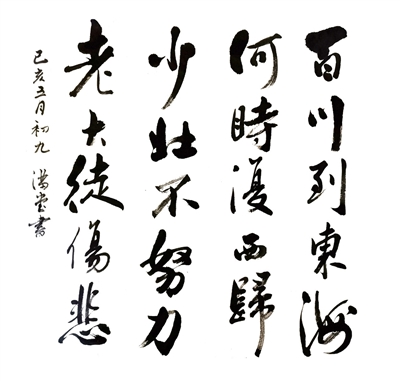 百川到東海
何時復西歸
少壯不努力
老大徒傷悲
己亥五月初九 堂書